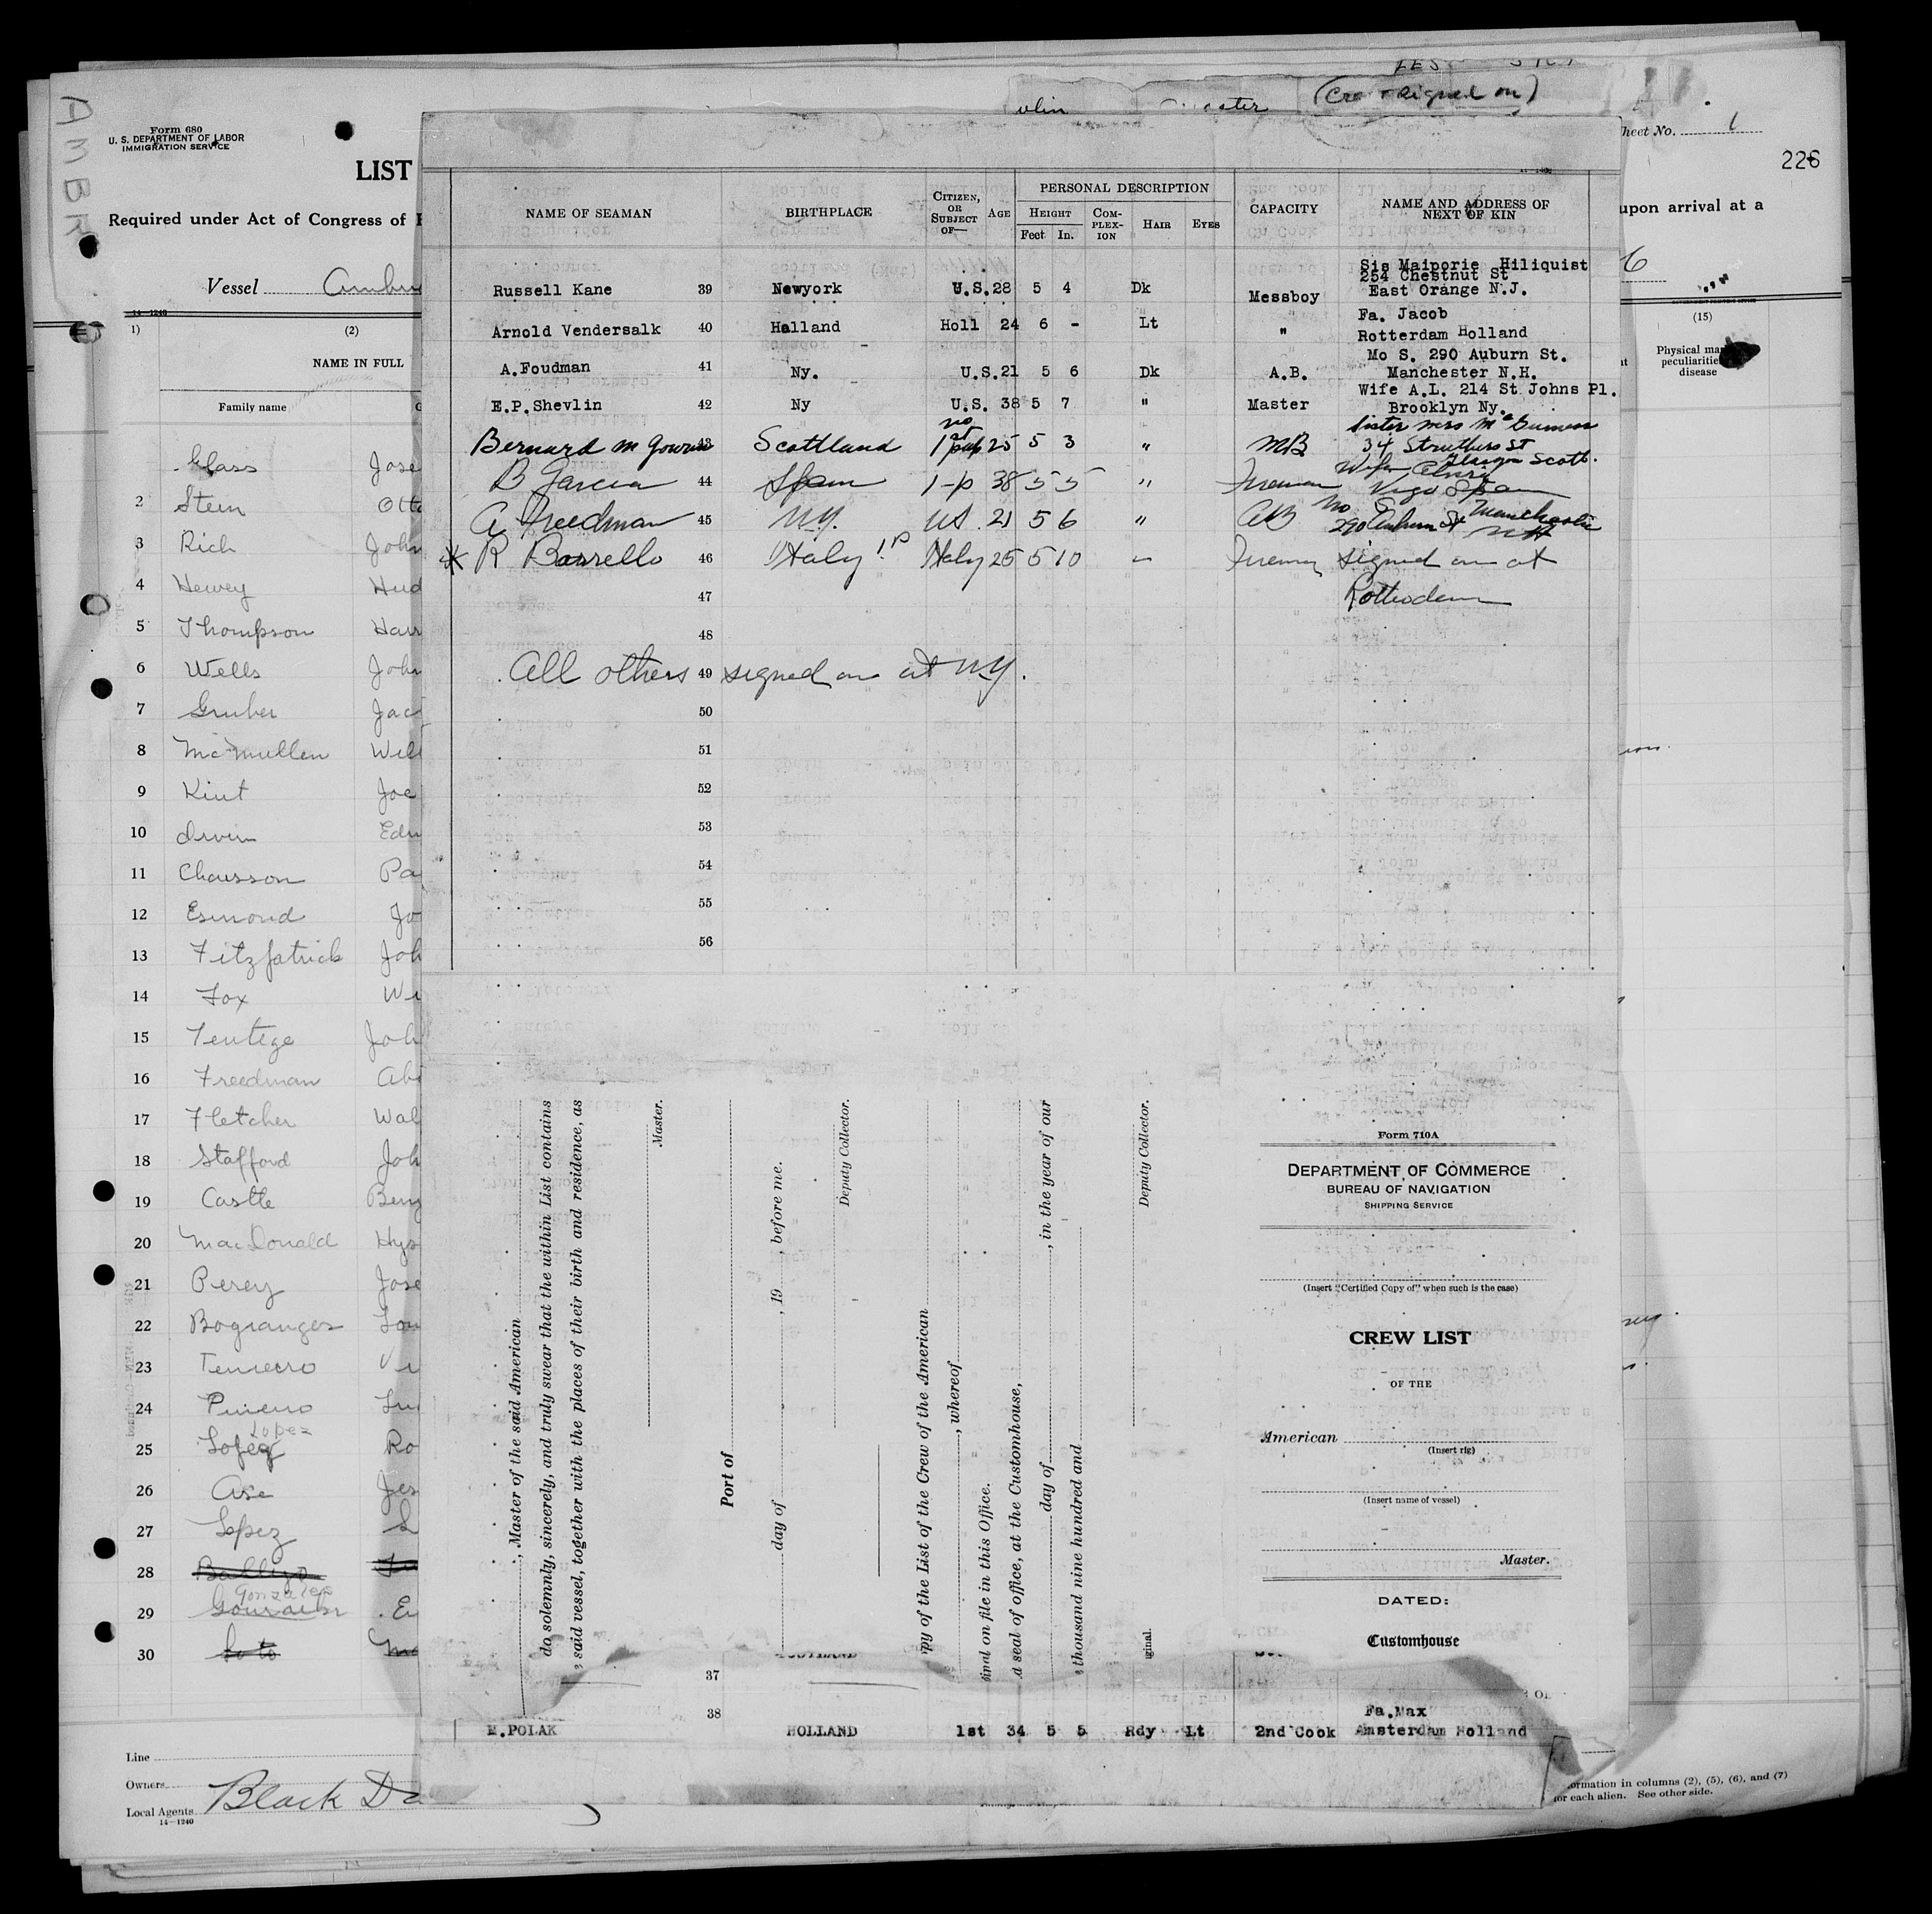 AMBR
Form 680
U. S. DEPARTMENT OF LABOR
IMMIGRATION SERVICE
LIST
Required under Act of Congress of
Vessel
(Crew signed on)
Sheet No. 1
226
upon arrival at a
6
14-1240
1) (2)
NAME IN FULL
Family name
(15)
Physical
peculiarities
disease
Glass Jose
2 Stein Otto
3 Rich John
4 Hewey Hud
5 Thompson Harr
6 Wells John
7 Gruber Jac
8 McMullen Will
9 Kint Joe
10 Irvin Edw
11 Chausson Pa
12 Esmond Jo
13 Fitzpatrick Joh
14 Fox Wi
15 Tentege Joh
16 Freedman Abr
17 Fletcher Wal
18 Stafford Joh
19 Castle Benj
20 MacDonald Hys
21 Perey Jose
22 Bogranges Lou
23 Tenreiro Vi
24 Pineiro
Lopez
25 Lopez Ro
26 Ase Jes
27 Lopez
28
Gonzales
29 E
30 Soto Ma
Line
Owners
Local Agents Black Da
14-1240
NAME OF SEAMAN BIRTHPLACE CITIZEN, OR SUBJECT OF— AGE PERSONAL DESCRIPTION CAPACITY NAME AND ADDRESS OF NEXT OF KIN
HEIGHT COM-PLEX-ION HAIR EYES
Feet In.
Sis Maiporie Hiliquist
254 Chestnut St
Russell Kane 39 Newyork U.S. 28 5 4 Dk Messboy East Orange N.J.
Fa. Jacob
Arnold Vendersalk 40 Holland Holl 24 6 - Lt " Rotterdam Holland
Mo S. 290 Auburn St.
A.Foudman 41 Ny. U.S. 21 5 6 Dk A.B. Manchester N.H.
Wife A.L. 214 St Johns Pl.
E.P.Shevlin 42 Ny U.S. 38 5 7 " Master Brooklyn Ny.
Sister Mrs McGuiness
Bernard McGowan 43 Scottland no 1st pap 25 5 3 " MB 34 Struthers St
Glasgow Scott.
B Garcia 44 Spain 1-p 38 5 5 " Fireman Wife Vigo Spain
A Freedman 45 N.Y. US. 21 5 6 " AB Mo S 290 Auburn St Manchester NH
* R Barrello 46 Italy 1.P Italy 25 5 10 - Fireman signed on at
47 Rotterdam
48
All others 49 signed on at NY.
50
51
52
53
54
55
56
, Master of the said American
do solemnly, sincerely, and truly swear that the within List contains
said vessel, together with the places of their birth and residence, as
Master.
Port of
day of , 19 , before me.
Deputy Collector.
py of the List of the Crew of the American
, whereof
inal on file in this Office.
d seal of office, at the Customhouse,
day of , in the year of our
thousand nine hundred and
Deputy Collector.
ginal.
Form 710A
DEPARTMENT OF COMMERCE
BUREAU OF NAVIGATION
SHIPPING SERVICE
(Insert "Certified Copy of" when such is the case)
CREW LIST
OF THE
American
(Insert rig)
(Insert name of vessel)
Master.
DATED:
Customhouse
37
38 Fa.Max
M.POLAK HOLLAND 1st 34 5 5 Rdy Lt 2nd Cook Amsterdam Holland
ormation in columns (2), (5), (6), and (7)
for each alien. See other side.